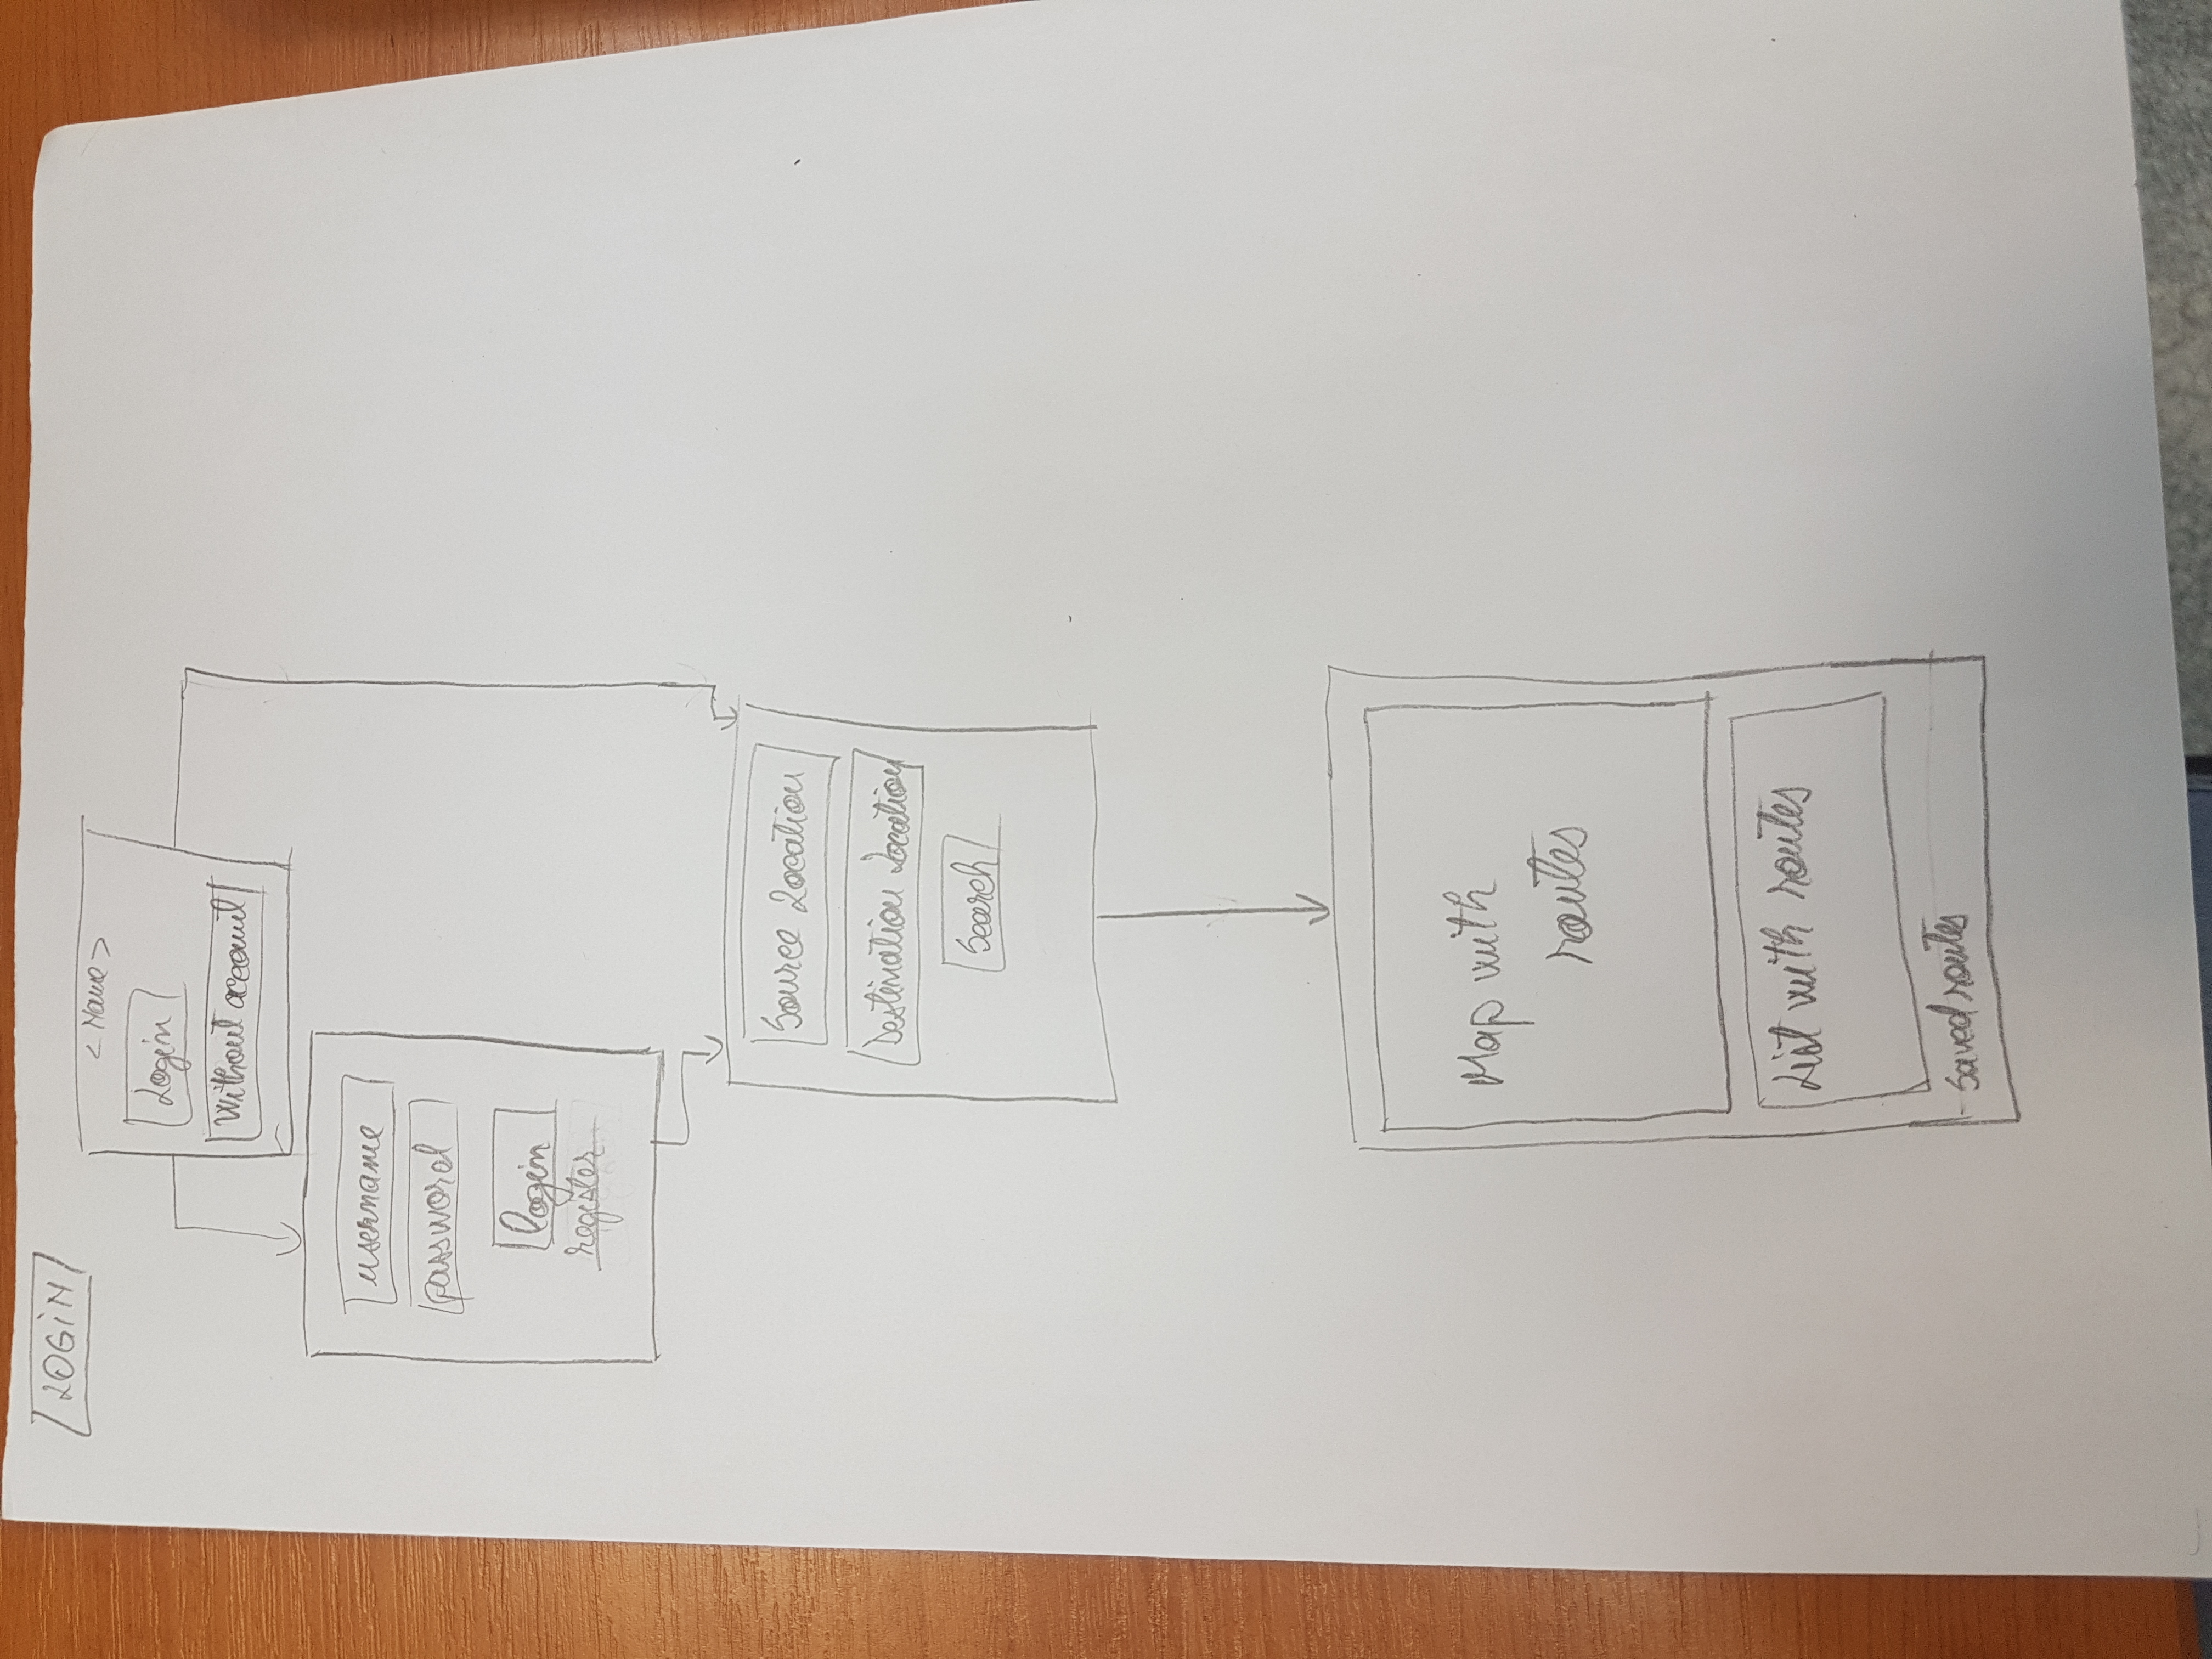 LOGiN
< Name >
Login
Without account
username
password
login
register
Source Location
Destination Location
Search
Map with
routes
List with routes
Saved routes